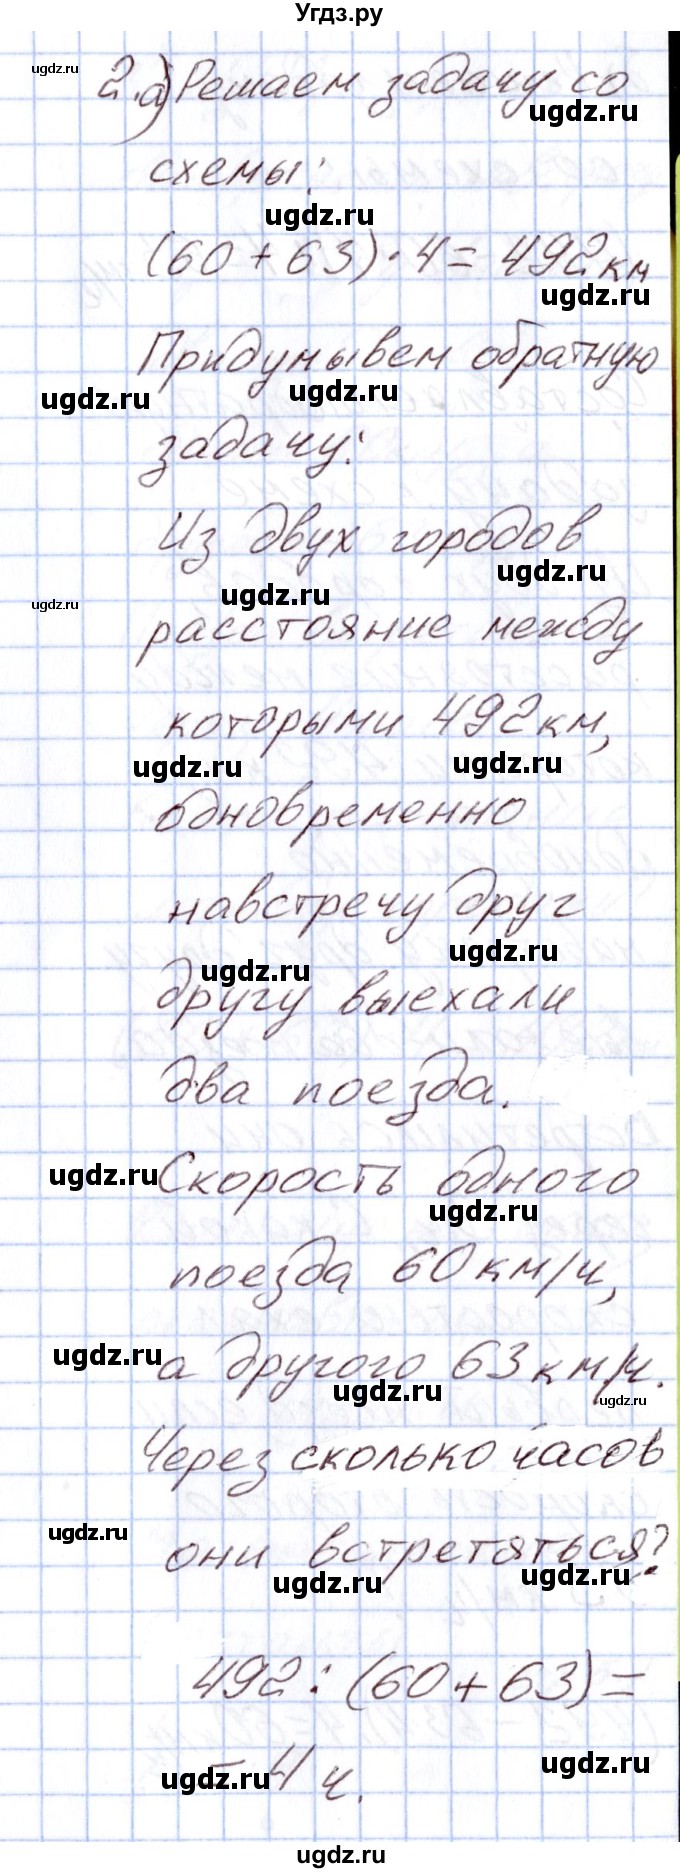 Угдз.ру
ugdz.ru
2.а) Решаем задачу со
ugdz.ru
схемы:
ugdz.ru
(60 + 63) · 4 = 492 км
ugdz.ru
Придумывем обратную
ugdz.ru ugdz.ru
задачу:
Из двух городов
ugdz.ru
ugdz.ru ugdz.ru
расстояние между
которыми 492 км,
ugdz.ru ugdz.ru
одновременно
навстречу друг
ugdz.ru
ugdz.ru
другу выехали
два поезда.
ugdz.ru Скорость одного
ugdz.ru
поезда 60 км/ч,
ugdz.ru
а другого 63 км/ч.
ugdz.ru ugdz.ru
Через сколько часов
ugdz.ru
они встретяться?
ugdz.ru ugdz.ru
492 : (60 + 63) =
ugdz.ru
= 4 ч.
ugdz.ru
ugdz.ru